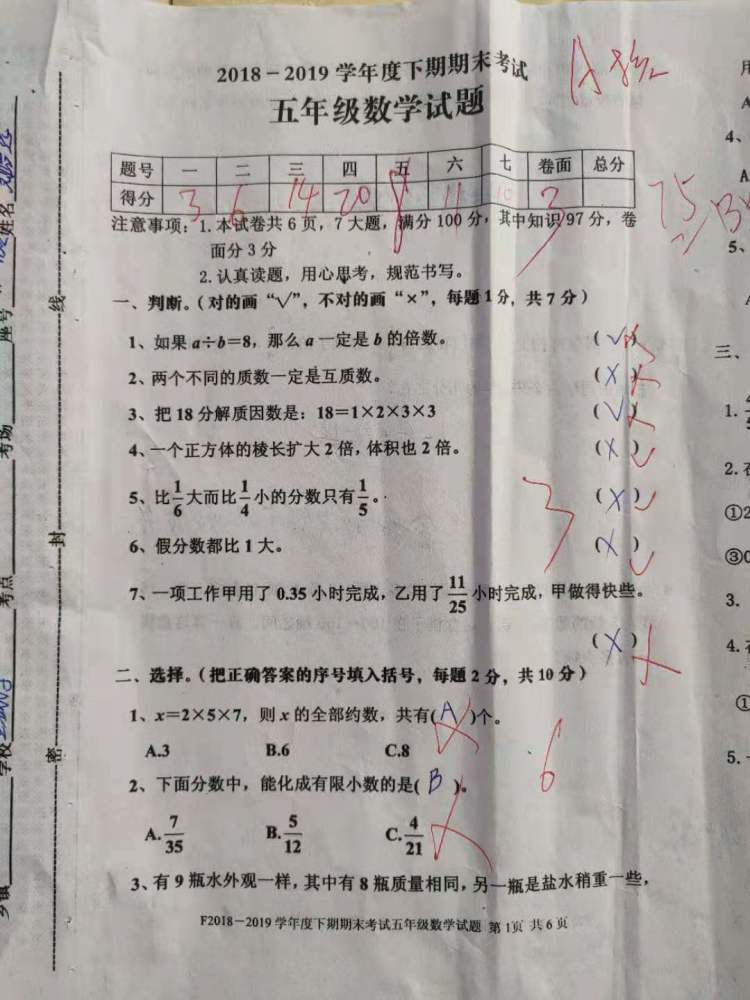 2018－2019 学年度下期期末考试
五年级数学试题
题号 一 二 三 四 五 六 七 卷面 总分
得分 3 6 14 20 8 11 10 3
75
注意事项：1.本试卷共 6 页，7 大题，满分 100 分，其中知识 97 分，卷
面分 3 分
2.认真读题，用心思考，规范书写。
一、判断。（对的画“√”，不对的画“×”，每题 1 分，共 7 分）
1、如果 a÷b＝8，那么 a 一定是 b 的倍数。 （√）
2、两个不同的质数一定是互质数。 （×）
3、把 18 分解质因数是：18＝1×2×3×3 （√）
4、一个正方体的棱长扩大 2 倍，体积也 2 倍。 （×）
5、比1/6大而比1/4小的分数只有1/5。 （×）
3
6、假分数都比 1 大。 （×）
7、一项工作甲用了 0.35 小时完成，乙用了11/25小时完成，甲做得快些。
（×）
二、选择。（把正确答案的序号填入括号，每题 2 分，共 10 分）
1、x＝2×5×7，则 x 的全部约数，共有(A)个。
A.3 B.6 C.8
6
2、下面分数中，能化成有限小数的是(B)。
A.7/35 B.5/12 C.4/21
3、有 9 瓶水外观一样，其中有 8 瓶质量相同，另一瓶是盐水稍重一些，
F2018－2019 学年度下期期末考试五年级数学试题 第 1页 共 6 页
乡镇 学校 考点 考场 座号 姓名
密 封 线
4、
A
5、
三、
1.
2.
①2
③0
3.
4.
①
5.